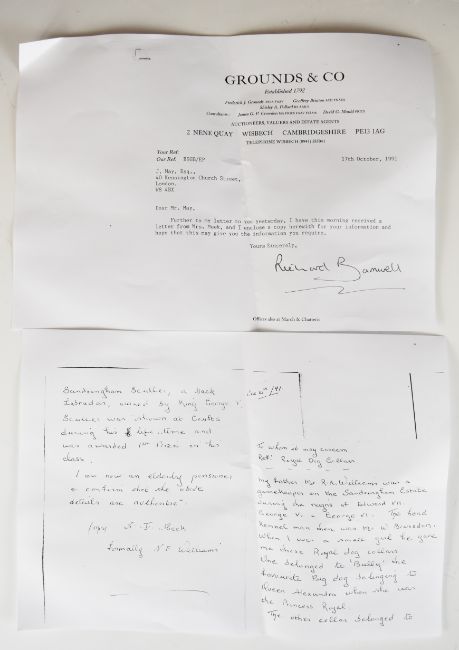 GROUNDS & CO
Established 1792
AUCTIONEERS, VALUERS AND ESTATE AGENTS
2 NENE QUAY WISBECH CAMBRIDGESHIRE PE13 1AG
TELEPHONE WISBECH
Your Ref:
Our Ref. BSGB/EP
17th October, 1991
J. May, Esq.,
40 Kensington Church Street,
London,
W8 4BX
Dear Mr. May,
Further to my letter to you yesterday, I have this morning received a
letter from Mrs. Meek, and I enclose a copy herewith for your information and
hope that this may give you the information you require.
Yours Sincerely,
Richard Barwell
Offices also at March & Chatteris
Sandringham Scutler, a black
Labrador, owned by King George V.
was shown at Crufts
during his life time and
was awarded 1st Prize in his
class.
I am now an elderly pensioner
& confirm that the above
details are authentic.
N. F. Meek
formally N F Williams
To whom it may concern
Ref: Royal Dog Collars
My father Mr R.A. Williams was a
gamekeeper on the Sandringham Estate
during the reigns of Edward VII.
George V. & George VI. The head
kennel man then was Mr W
When I was a small girl he gave
me these Royal dog collars
One belonged to 'Bully' the
favourite Pug dog belonging to
Queen Alexandra when she was
the Princess Royal.
The other collar belonged to